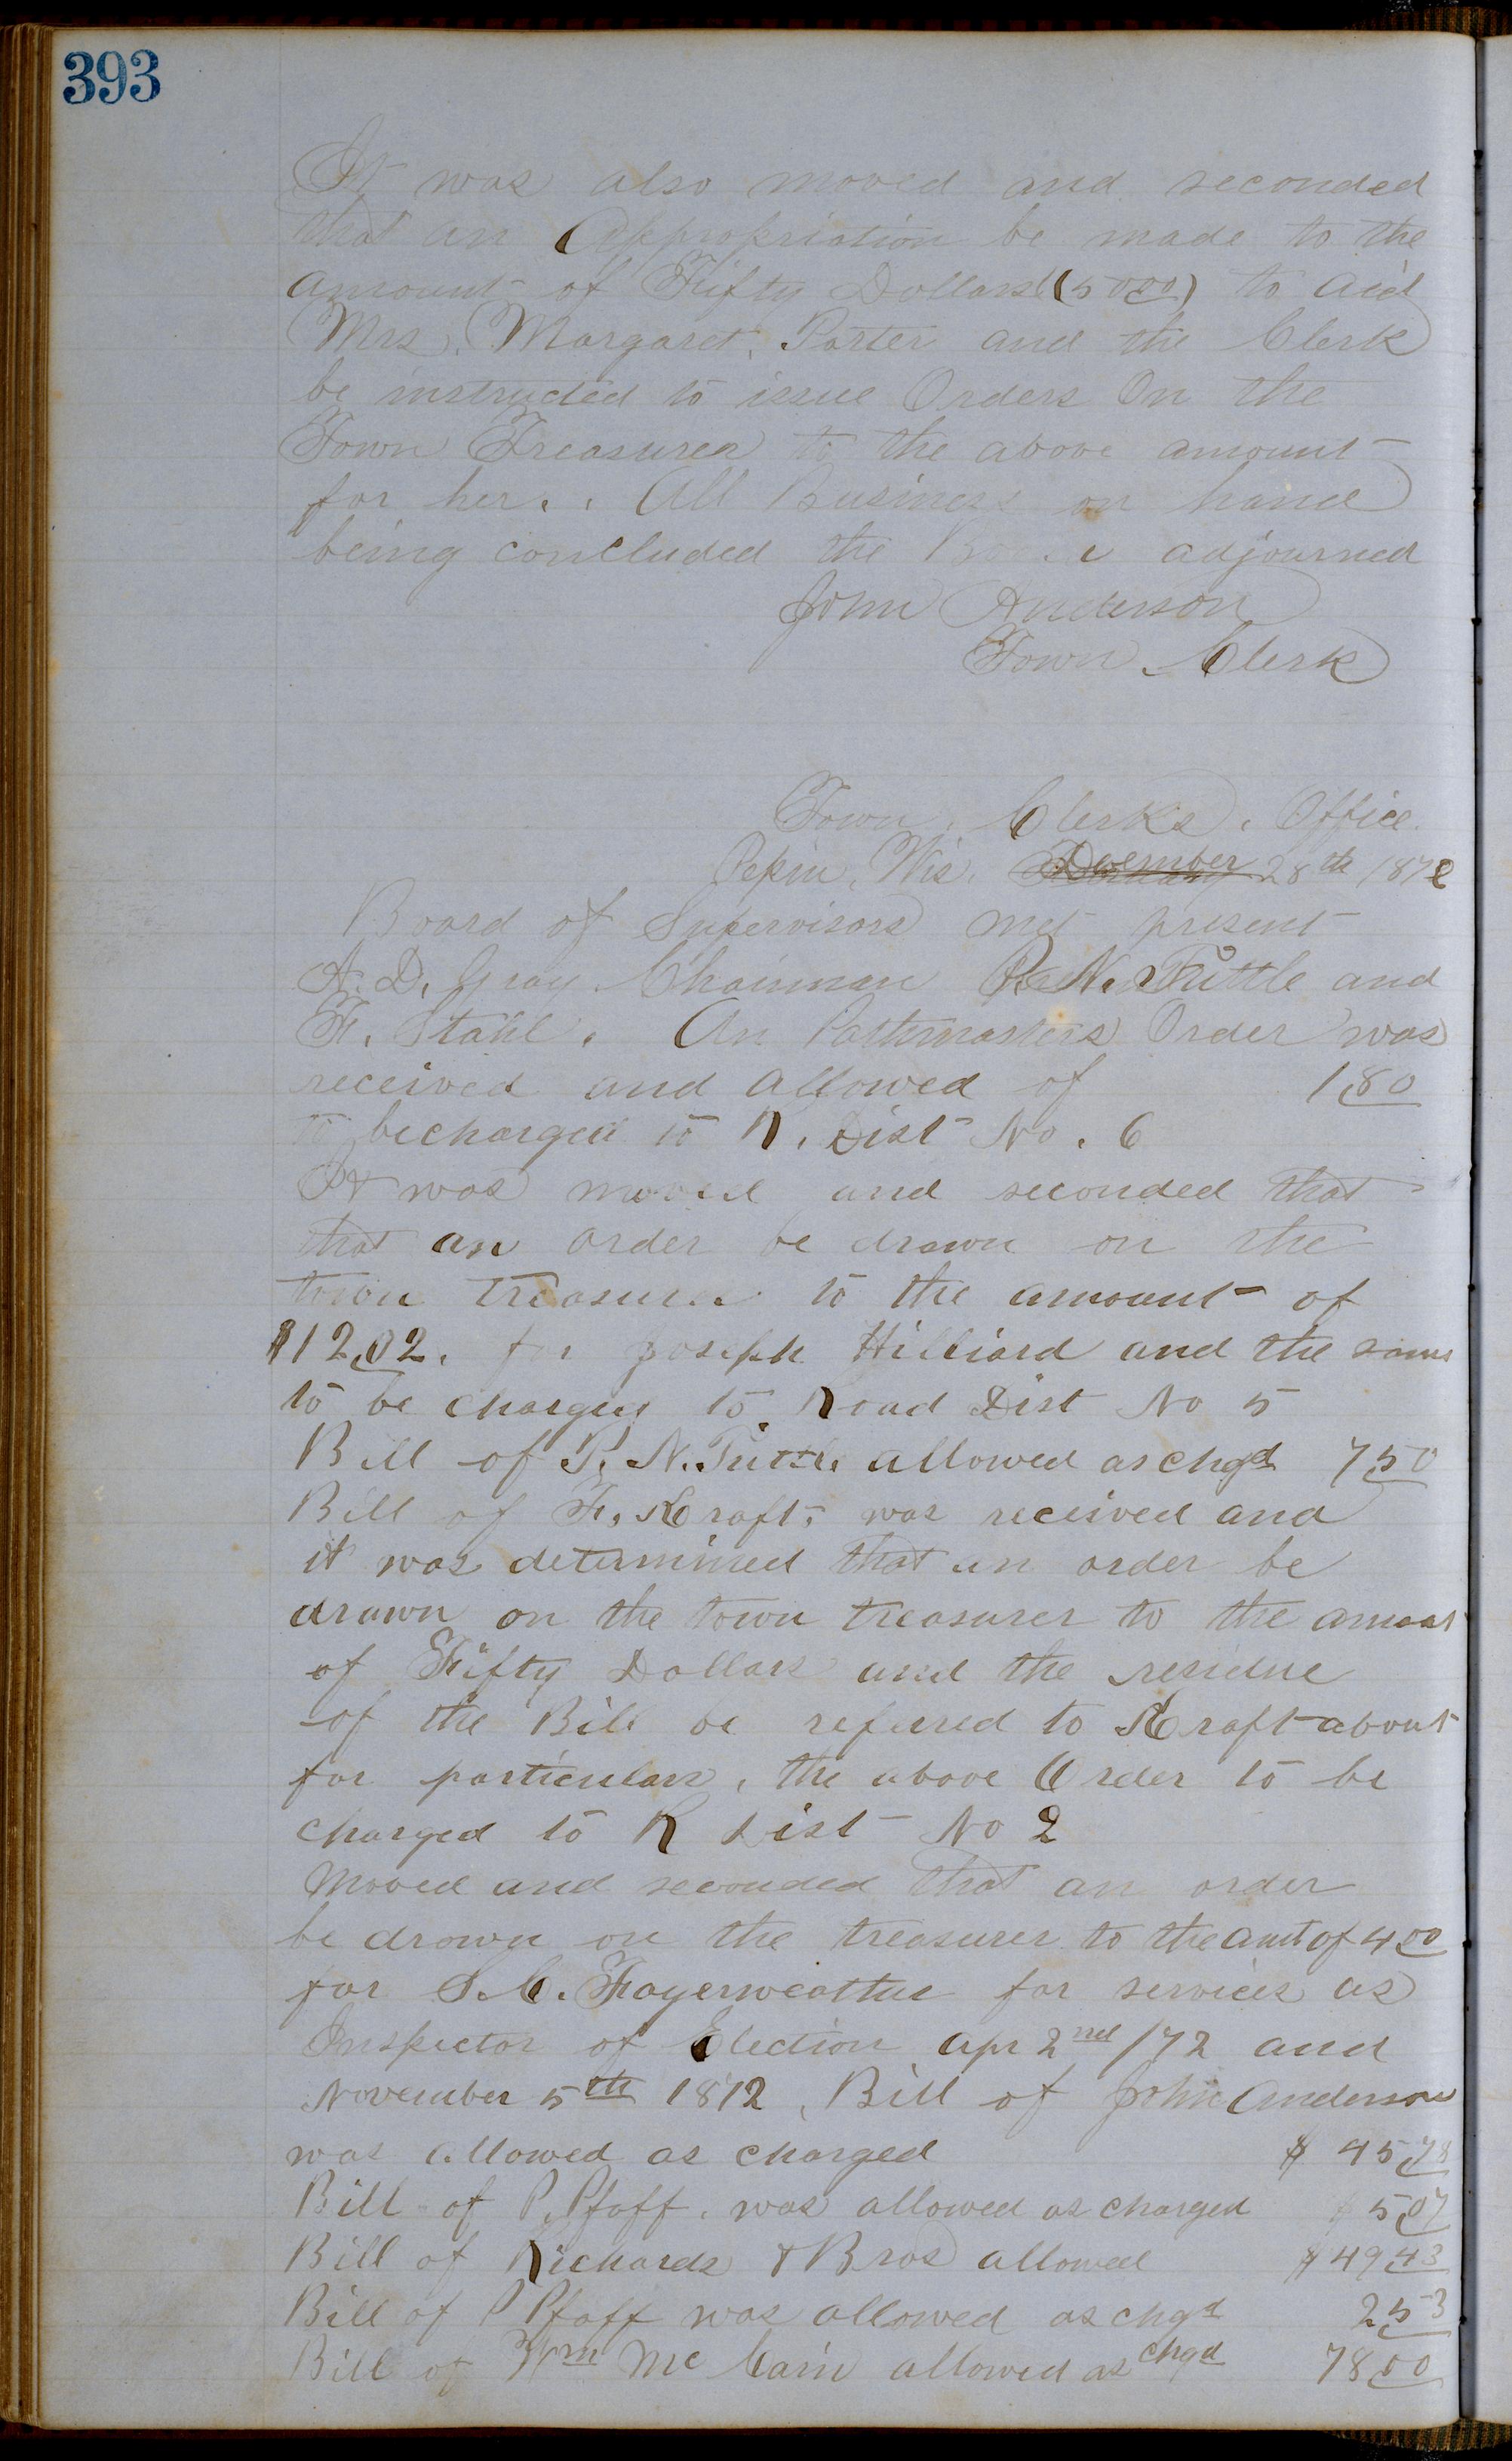 393
It was also moved and seconded
that an Appropriation be made to the
amount of Fifty Dollars (50 00) to aid
Mrs. Margaret. Porter and the Clerk
be instructed to issue Orders On the
Town Treasurer to the above amount
for her.. All Business on hand
being concluded the Board adjourned
John Anderson
Town Clerk
Town. Clerks. Office.
Pepin. Wis. December 28th 1872
Board of Supervisors met present
A. D. Gray. Chairman P. N. Tuttle and
F. Stahl. An Pathmasters Order was
received and allowed of 1.80
to becharged to R. Dist No. 6
It was moved and seconded that
that an order be drawn on the
town treasurer to the amount of
$12.02. for Joseph Hilliard and the same
to be charged to Road Dist No 5
Bill of P. N. Tuttle allowed as chgd 7.50
Bill of F. Kraft, was received and
it was determined that an order be
drawn on the town treasurer to the amount
of Fifty Dollars and the residue
of the Bill be referred to Kraft about
for particulars, the above Order to be
charged to R Dist No 2
Moved and seconded that an order
be drawn on the treasurer to the amt of 4 00
for S. C. Fayerweather for services as
Inspector of Election apr 2nd /72 and
November 5th 1872, Bill of John Anderson
was allowed as charged $ 45.78
Bill of P. Pfaff. was allowed as charged $ 5.07
Bill of Richards & Bros allowed $ 49.43
Bill of P Pfaff was allowed as chgd 2.53
Bill of Wm Mc Cain allowed as chgd 78.00